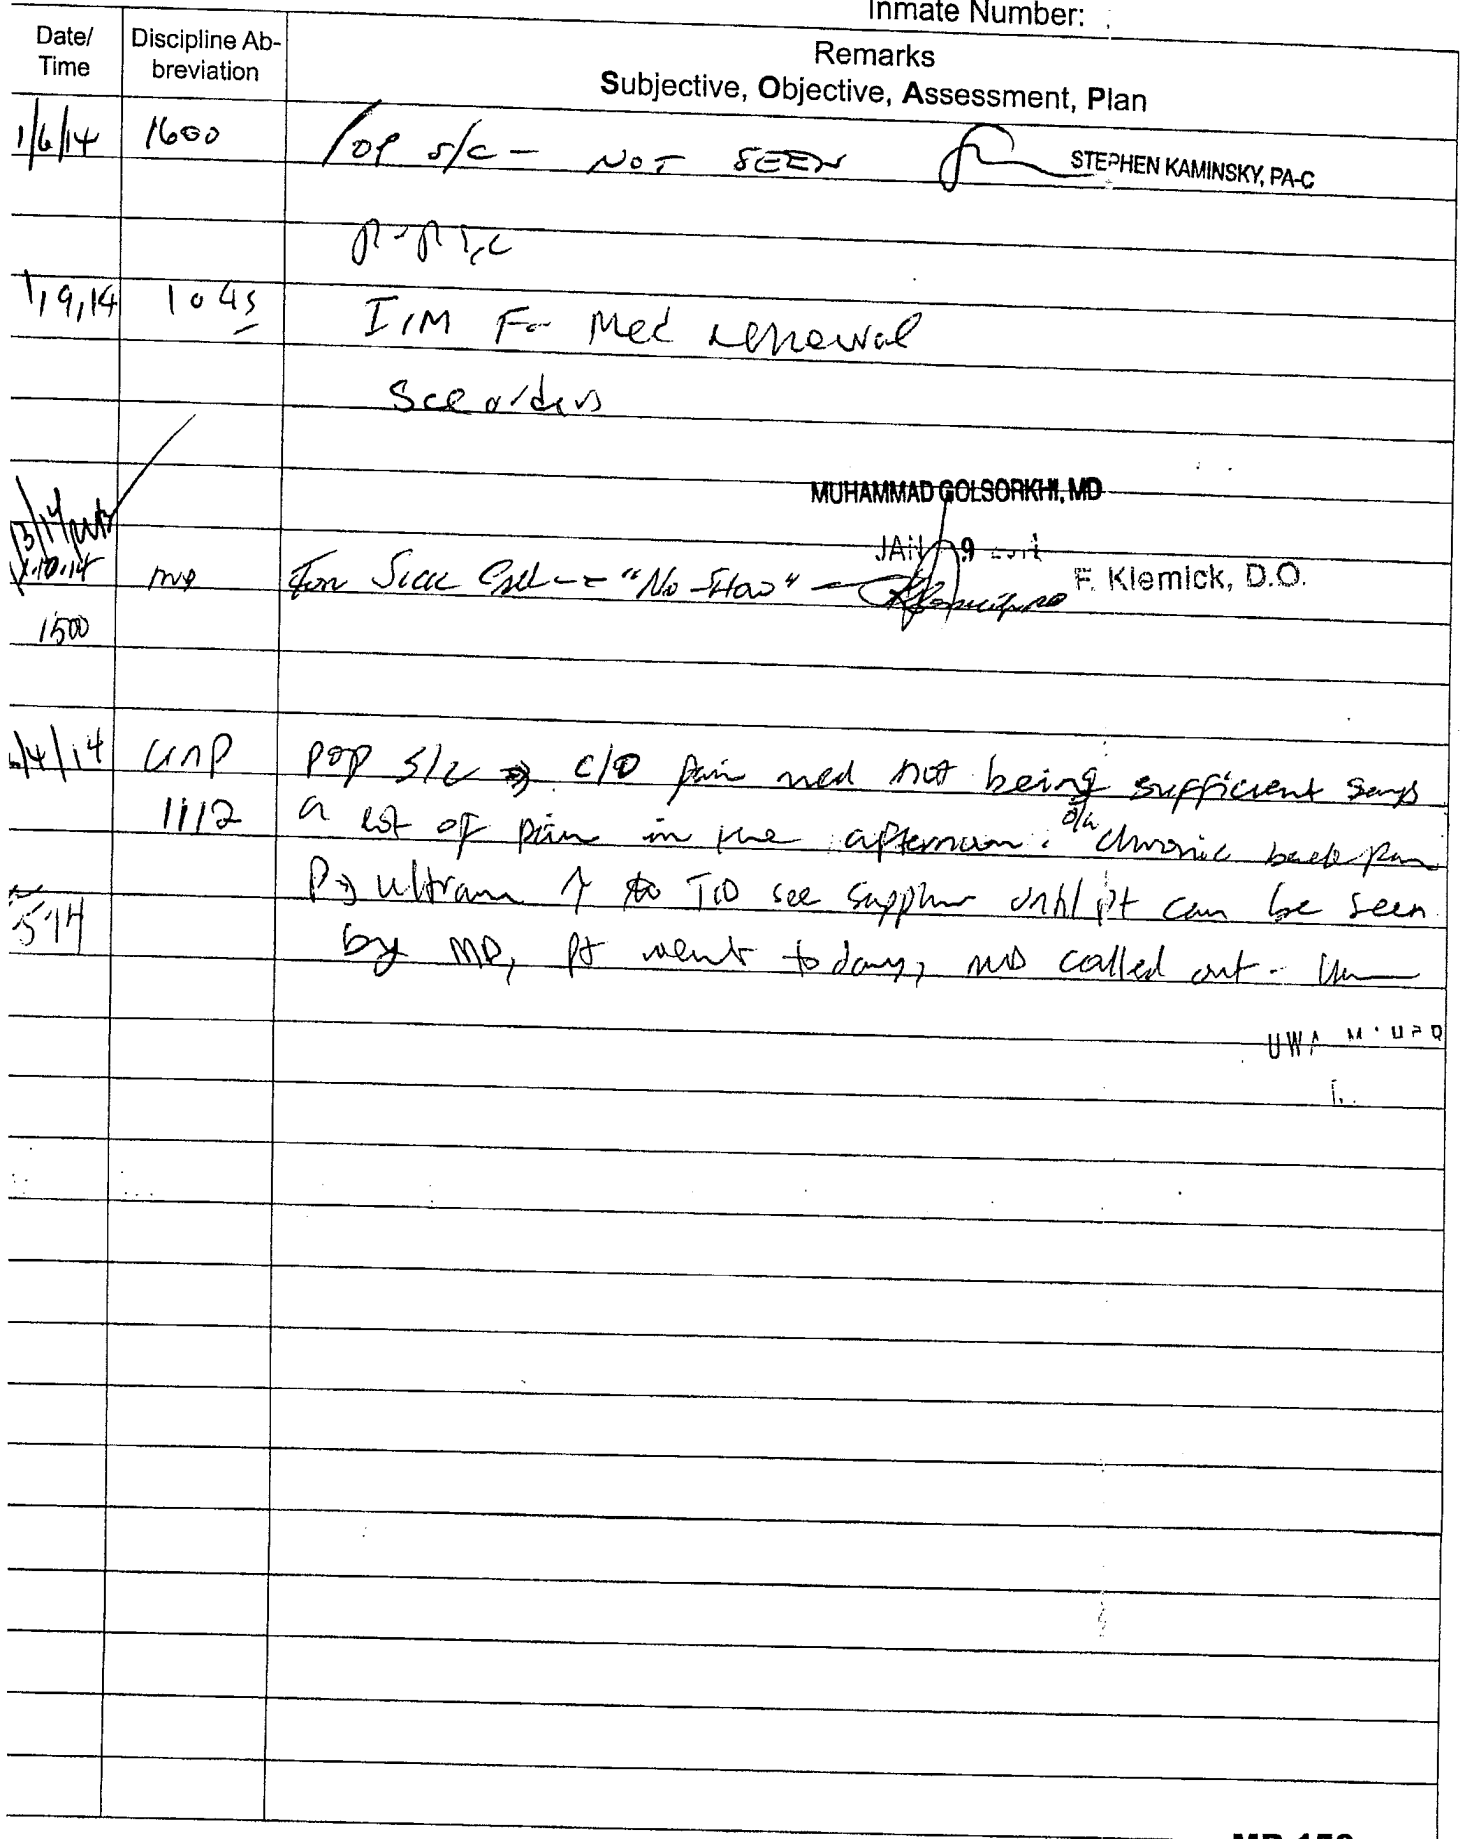 Inmate Number:
Date/ Time
Discipline Abbreviation
Remarks
Subjective, Objective, Assessment, Plan
1/6/14 1600 POP S/C - NOT SEEN STEPHEN KAMINSKY, PA-C
1,9,14 1045 I/M For Med renewal
See orders
MUHAMMAD GOLSORKHI, MD
JAN 9
1.10.14 For Sick Call -- "No-Show" - F. Klemick, D.O.
1500
/4/14 pop s/c → c/o pain med not being sufficient says
1112 a lot of pain in the afternoon. chronic back pain
P→ Ultram ↑ to TID see until pt can be seen
by MD, pt went today, MD called out -
MR-153